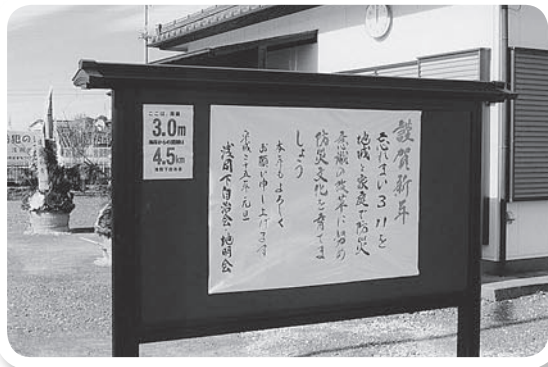 ここは、海抜
3.0m
海岸からの距離は
4.5km
浅間下自治会
謹賀新年
忘れまい3.11を
地域と家庭で防災
意識の改革に努め
防災文化を育てま
しょう
本年もよろしく
お願い申し上げます
平成二十五年元旦
浅間下自治会・地明会